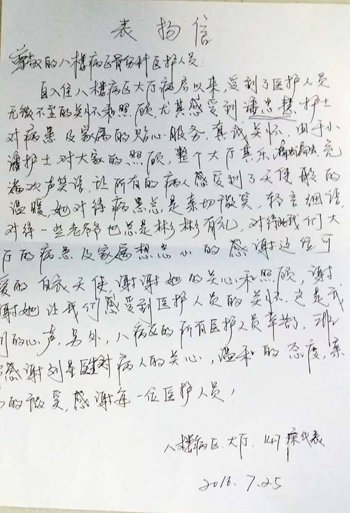 表扬信
尊敬的八楼病区骨伤科医护人员:
自入住八楼病区大厅病房以来,受到了医护人员
无微不至的关怀和照顾,尤其感受到潘忠想护士
对病患及家属的贴心服务,真诚关怀。由于小
潘护士对大家的照顾,整个大厅其乐融融,充
满欢声笑语,让所有的病人感受到了天使般的
温暖。她对待病患总是亲切微笑,轻言细语,
对待一些老爷也总是彬彬有礼,对待我们大
厅的病患及家属想点小的感谢这位可
爱的白衣天使,谢谢她的关心和照顾,谢
谢她让我们感受到医护人员的关怀。这是我
们的心声,另外,八病区的所有医护人员辛苦了,
感谢刘星医生对病人的关心,温和的态度,亲
的微笑,感谢每一位医护人员!
八楼病区大厅, 代表
2016.7.25